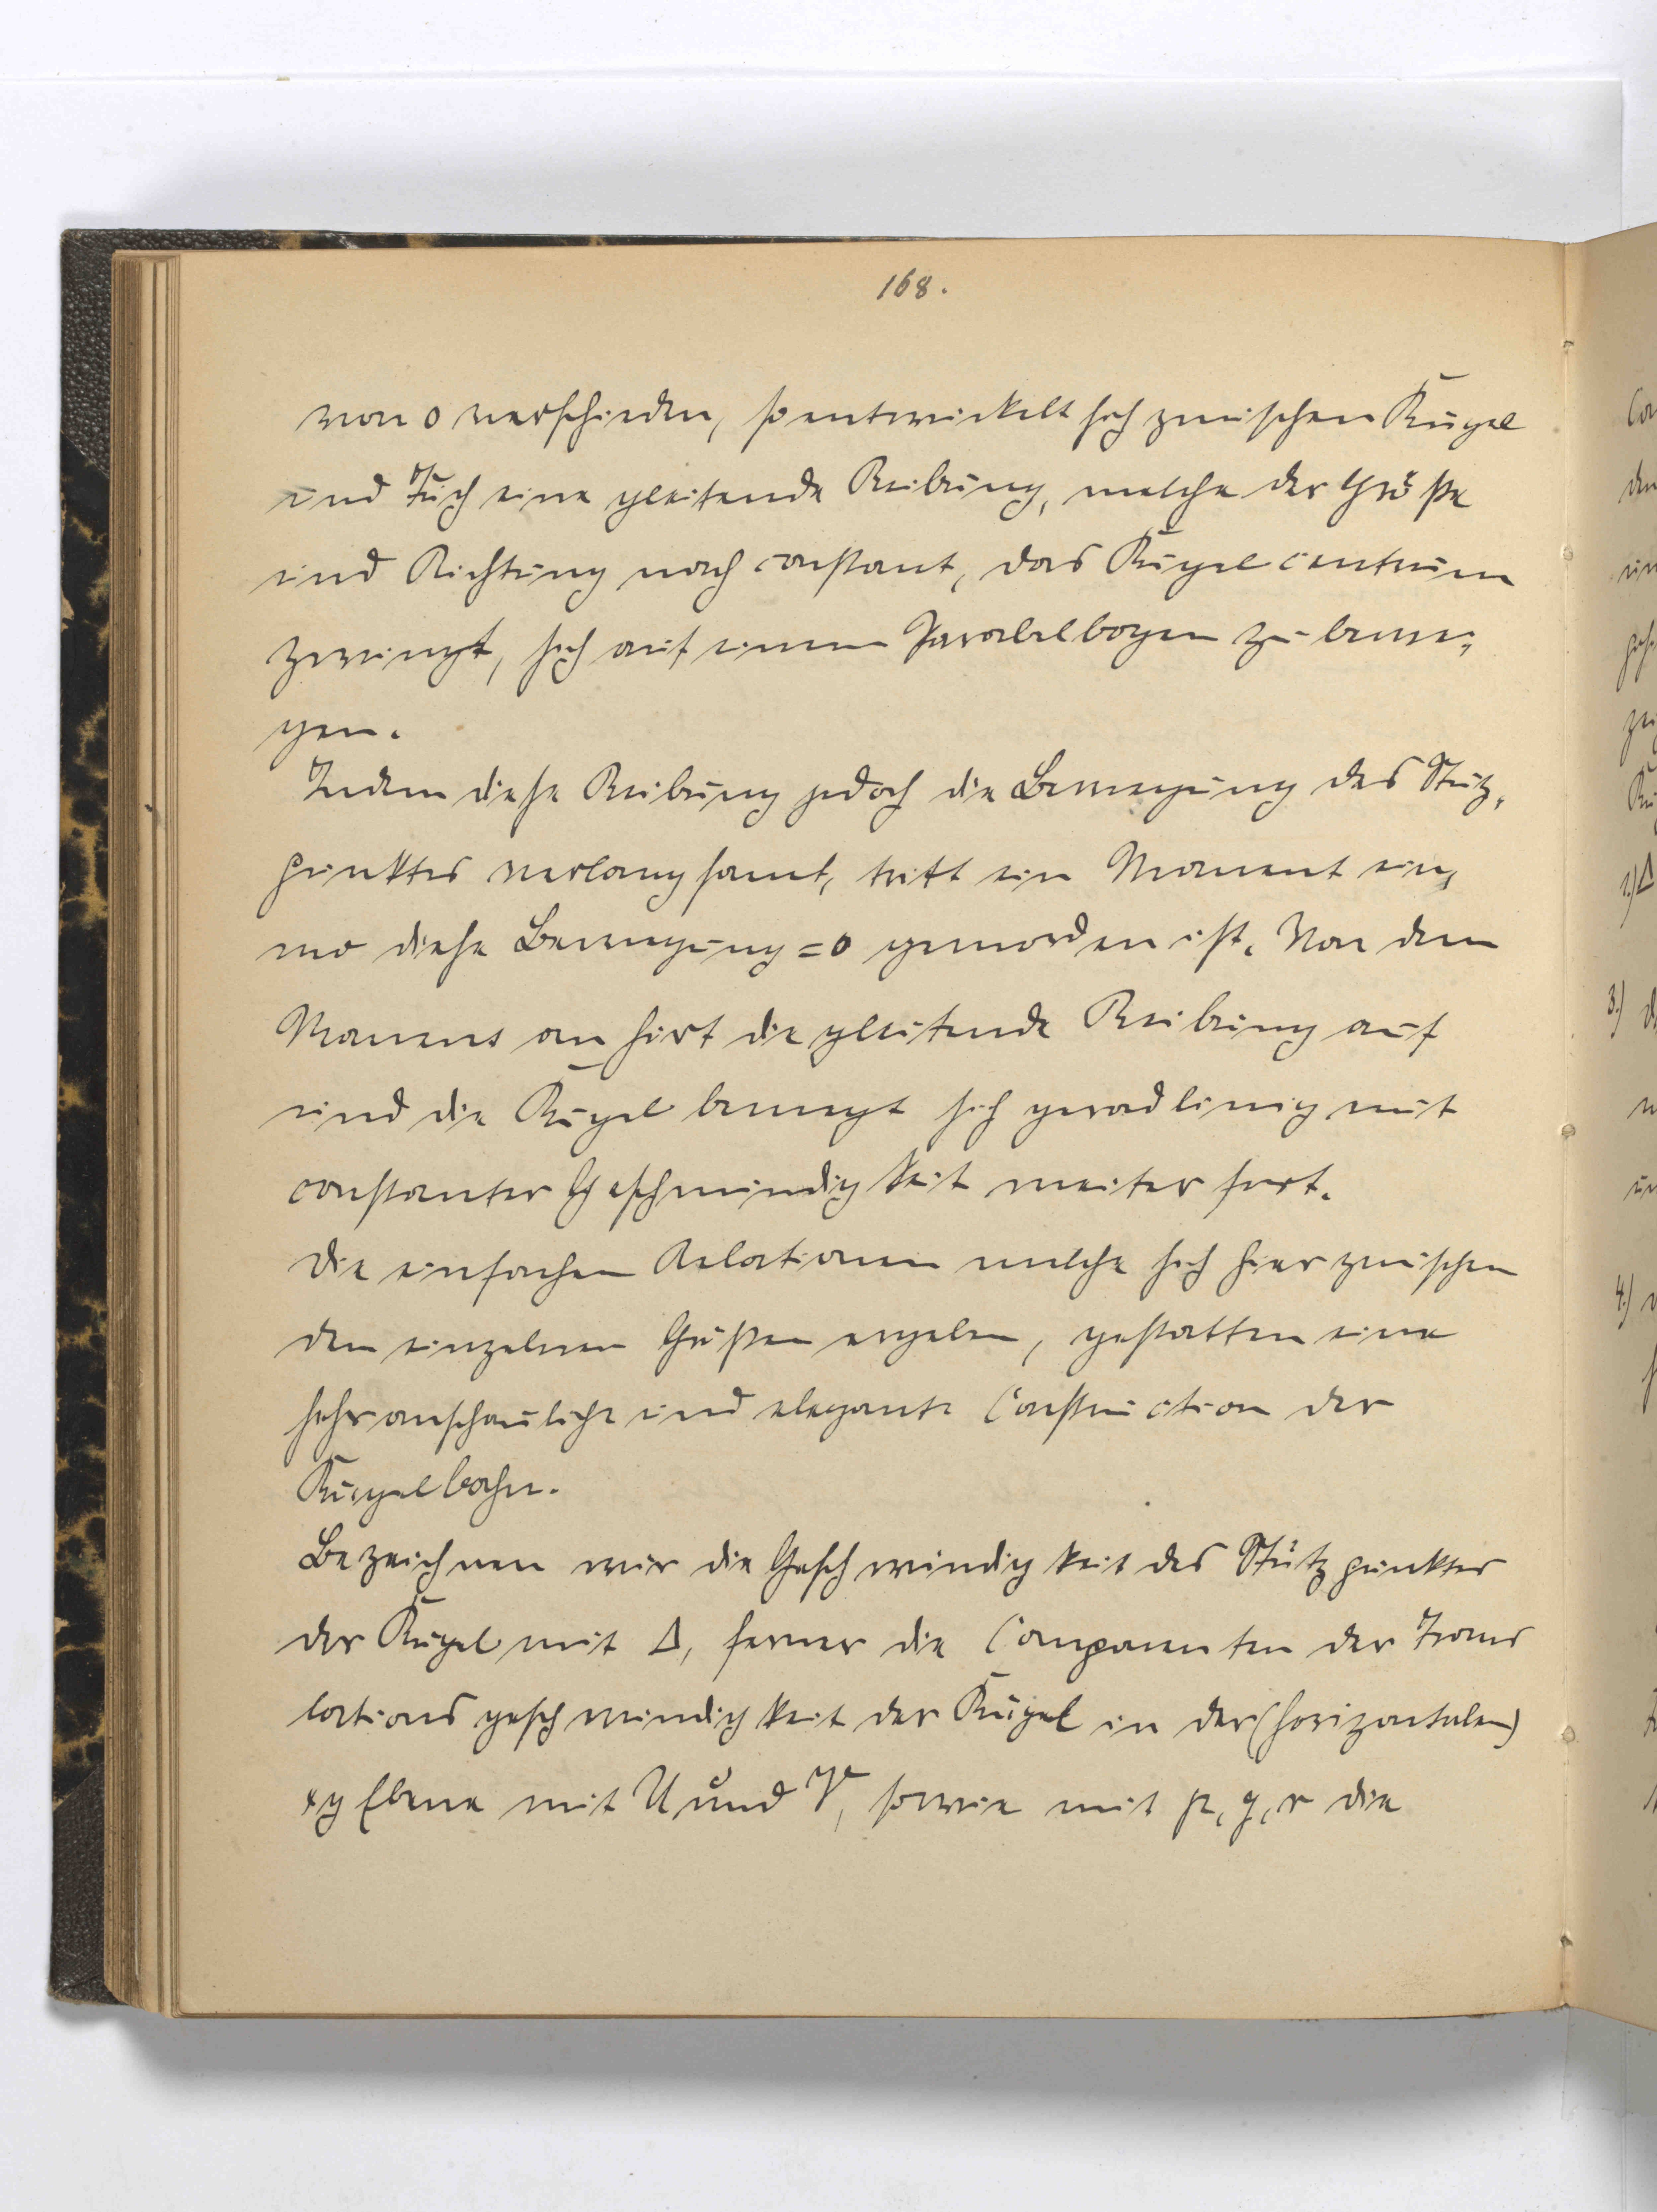 168.
von 0 verschieden, so entwickelt sich zwischen Kugel
und Tuch eine gleitende Reibung, welche der Größe
und Richtung nach constant, das Kugelcentrum
zwingt, sich auf einem Parabelbogen zu bewe-
gen.
Indem diese Reibung jedoch die Bewegung des Stütz-
punktes verlangsamt, tritt ein Moment ein,
wo diese Bewegung = 0 geworden ist. Von dem
Moment an hört die gleitende Reibung auf
und die Kugel bewegt sich geradlinig mit
constanter Geschwindigkeit weiter fort.
Die einfachen Relationen welche sich hier zwischen
den einzelnen Größen ergeben, gestatten eine
sehr anschauliche und elegante Construction der
Kugelbahn.
Bezeichnen wir die Geschwindigkeit des Stützpunktes
der Kugel mit Δ, ferner die Componenten der Trans
lationsgeschwindigkeit der Kugel in der (horizontalen)
xy Ebene mit U und V, sowie mit p, q, r die